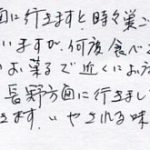 面に行きますと、時々巣ご
いますが、何度食べる
お菓子で近くにお方
長野方面に行きまし
きます。いやされる味